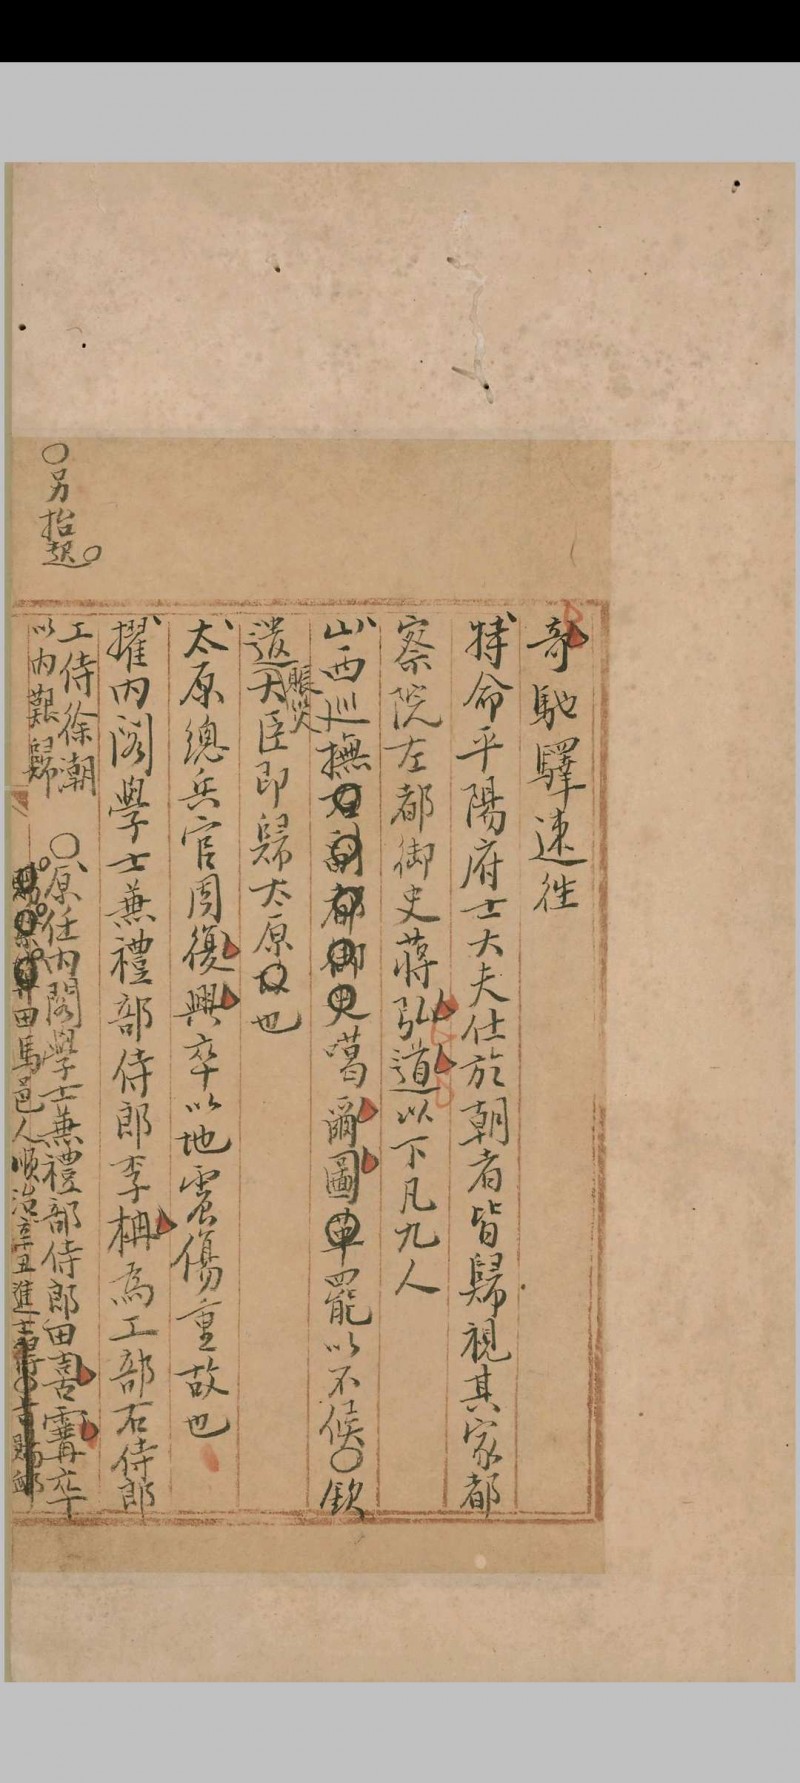 奇馳驛速徃
特命平陽府士大夫仕於朝者皆歸視其家都
察院左都御史蔣弘道以下凡九人
山西巡撫右副都御史噶爾圖革罷以不候欽
遣賑災大臣即歸太原故也
太原總兵官周復興卒以地震傷重故也
擢內閣學士兼禮部侍郎李柟為工部右侍郎
工侍徐潮
以內艱歸
另抬起
原任內閣學士兼禮部侍郎田喜䨥卒
田馬邑人順治辛丑進士